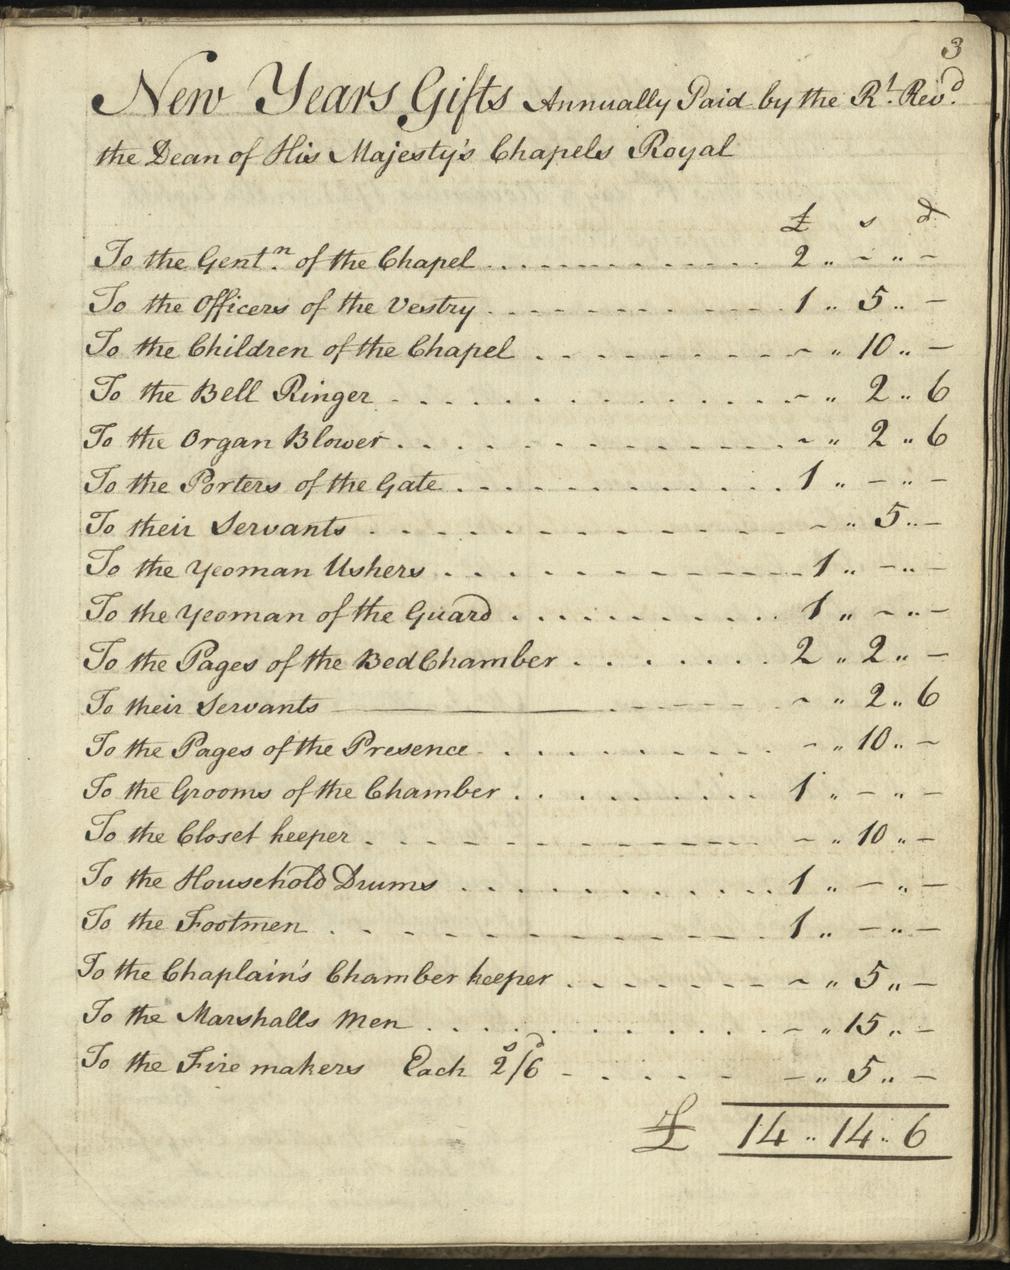 3
New Years Gifts Annually Paid by the Rt. Revd.
the Dean of His Majesty's Chapels Royal
£ s d
To the Gentn. of the Chapel . . . . . . . . . . 2 „ - „ -
To the Officers of the Vestry . . . . . . . . . . 1 „ 5 „ -
To the Children of the Chapel . . . . . . . . . . - „ 10 „ -
To the Bell Ringer . . . . . . . . . . - „ 2 „ 6
To the Organ Blower . . . . . . . . . . - „ 2 „ 6
To the Porters of the Gate . . . . . . . . . . 1 „ - „ -
To their Servants . . . . . . . . . . - „ 5 „ -
To the Yeoman Ushers . . . . . . . . . . 1 „ - „ -
To the Yeoman of the Guard . . . . . . . . . . 1 „ - „ -
To the Pages of the BedChamber . . . . . . 2 „ 2 „ -
To their Servants . . . . . . . . . . - „ 2 „ 6
To the Pages of the Presence . . . . . . . . . . - „ 10 „ -
To the Grooms of the Chamber . . . . . . . . . . 1 „ - „ -
To the Closet keeper . . . . . . . . . . - „ 10 „ -
To the Household Drums . . . . . . . . . . 1 „ - „ -
To the Footmen . . . . . . . . . . 1 „ - „ -
To the Chaplain's Chamber keeper . . . . . . . - „ 5 „ -
To the Marshalls Men . . . . . . . . . . - „ 15 „ -
To the Fire makers Each 2s/6d - . . . . . - „ 5 „ -
£ 14 „ 14 „ 6